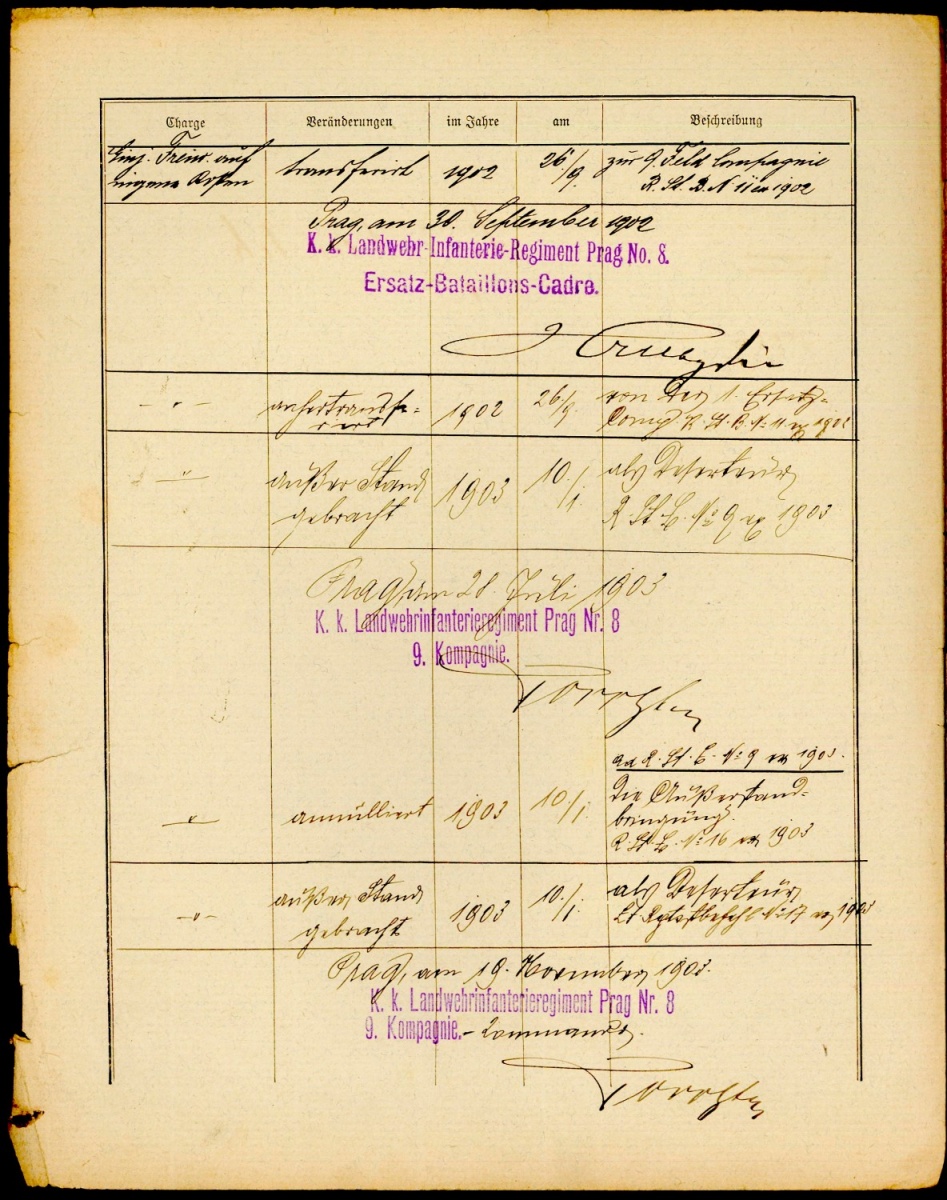 Charge Veränderungen im Jahre am Beschreibung
Einj. Freiw. auf
eigene Kosten transferirt 1902 26/9. zur 9. Feld Compagnie
R. St. B. N 11 ex 1902
Prag, am 30. September 1902
K. k. Landwehr-Infanterie-Regiment Prag No. 8.
Ersatz-Bataillons-Cadre.
-"- anhertransfe-
rirt 1902 26./9. von der 1. Ersatz-
Comp. R. St. B. No 11 ex 1902
-"- außer Stand
gebracht 1903 10./1. als Deserteur
R. St. B. No 9 ex 1903
Prag, am 28. Juli 1903
K. k. Landwehrinfanterieregiment Prag Nr. 8
9. Kompagnie.
ad R. St. B. No 9 ex 1903.
-"- annulliert 1903 10./1. die Außerstand-
bringung.
R. St. B. No 16 ex 1903
-"- außer Stand
gebracht 1903 10./1. als Deserteur
Lt. Rgtsbefehl No 17 ex 1903
Prag, am 19. November 1903.
K. k. Landwehrinfanterieregiment Prag Nr. 8
9. Kompagnie.- Commando.